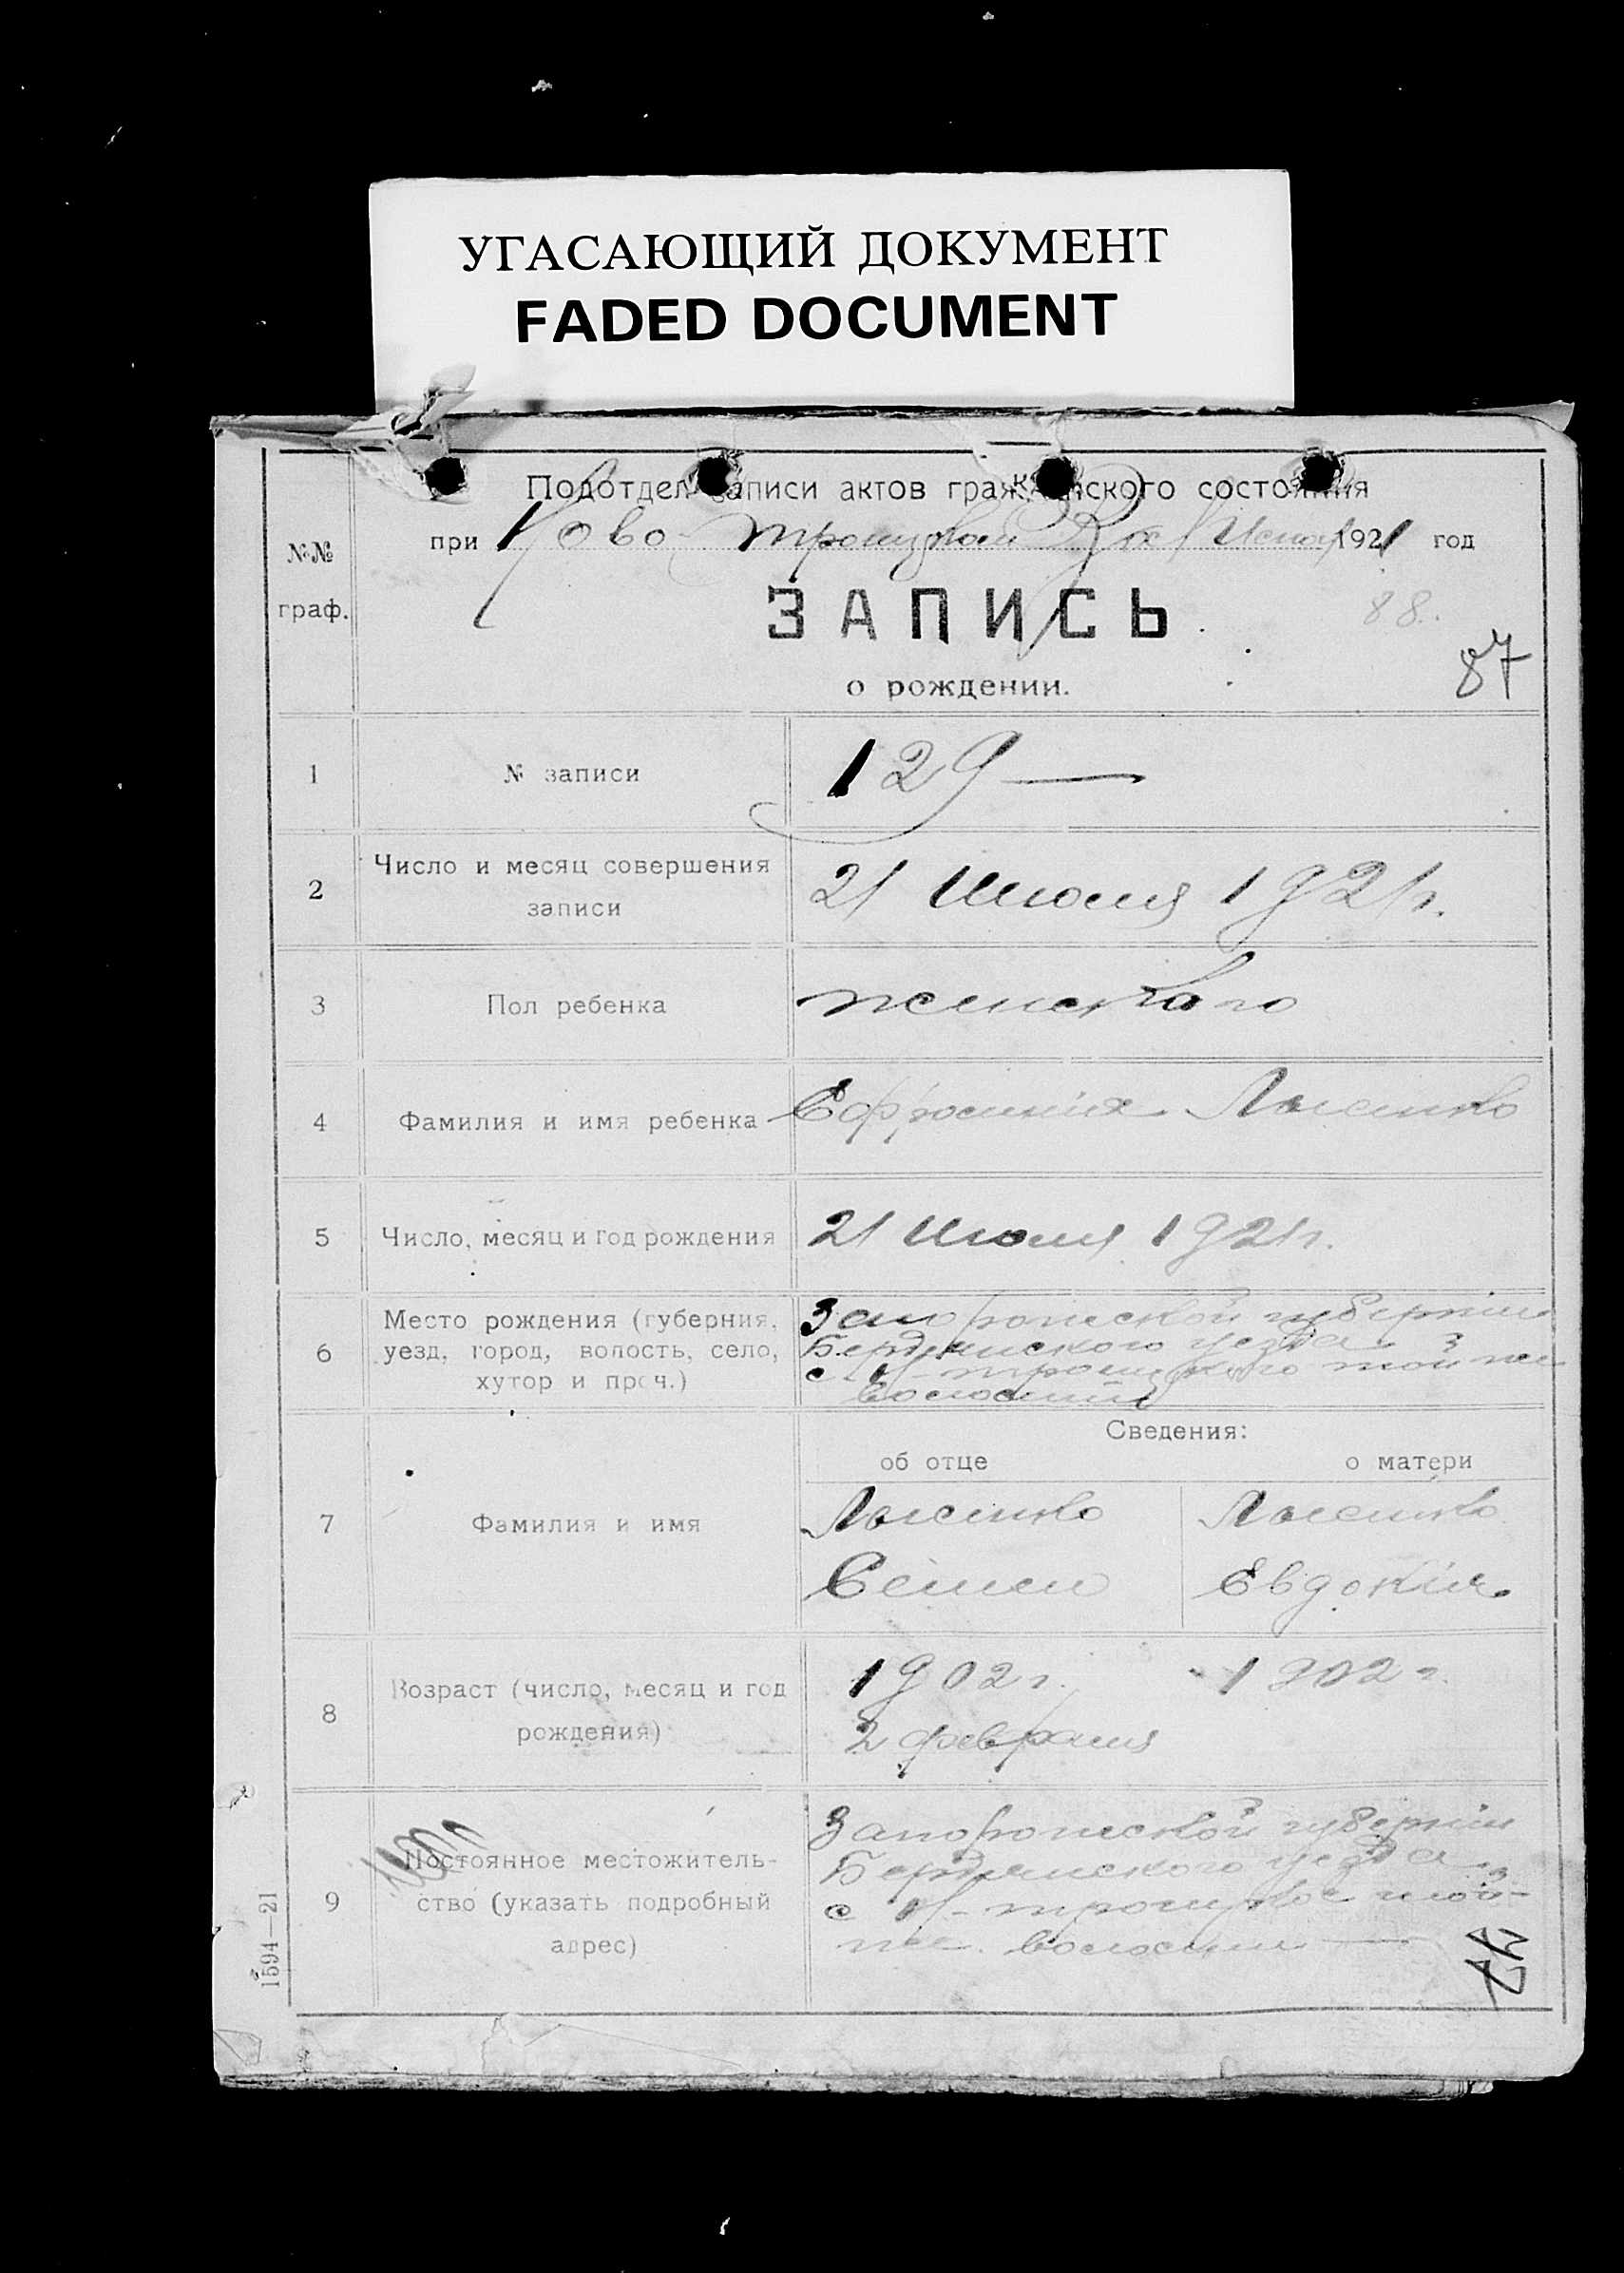 УГАСАЮЩИЙ ДОКУМЕНТ
FADED DOCUMENT
Подотдел записи актов гражданского состояния
при Ново-Троицком 1921 год
№№
граф.
ЗАПИСЬ
о рождении.
88.
87
1 № записи 129 —
2 Число и месяц совершения
записи
21 Июля 1921 г.
3 Пол ребенка женского
4 Фамилия и имя ребенка Ефросинія Лысенко
5 Число, месяц и год рождения 21 Июля 1921 г.
6 Место рождения (губерния,
уезд, город, волость, село,
хутор и проч.)
Запорожской губерніи
Бердянского уезда
с. Н-Троицкого той же
волости
Сведения:
об отце о матери
7 Фамилия и имя
Лысенко Лысенко
Семен Евдокія
8 Возраст (число, месяц и год
рождения)
1902 г. 1902 г.
2 февраля
9 Постоянное местожитель-
ство (указать подробный
адрес)
Запорожской губерніи
Бердянского уезда
с Н-Троицкое той-
же волости —
1594—21